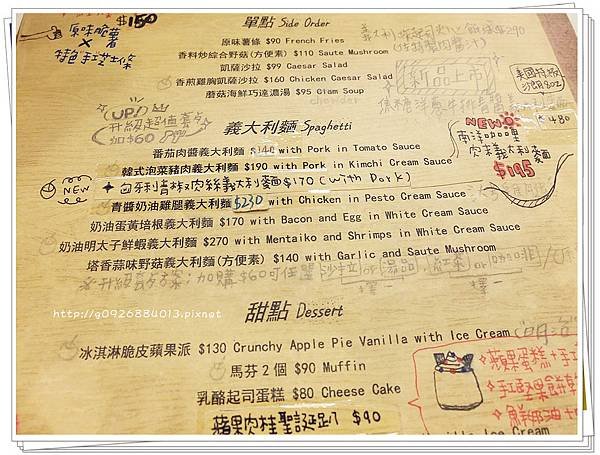 $150
原味脆薯
×
特色手工芝士條
單點 Side Order
原味薯條 $90 French Fries
香料炒綜合野菇(方便素) $110 Saute Mushroom
凱薩沙拉 $99 Caesar Salad
香煎雞胸凱薩沙拉 $160 Chicken Caesar Salad
蘑菇海鮮巧達濃湯 $95 Clam Soup
chowder
新品上市
美國特級
沙朗8oz
$480
UP!
升級超值套餐
加$60
義大利麵 Spaghetti
番茄肉醬義大利麵 $140 with Pork in Tomato Sauce
韓式泡菜豬肉義大利麵 $190 with Pork in Kimchi Cream Sauce
NEW
匈牙利青椒肉絲義大利麵 $170 (with Pork)
青醬奶油雞腿義大利麵 $230 with Chicken in Pesto Cream Sauce
奶油蛋黃培根義大利麵 $170 with Bacon and Egg in White Cream Sauce
奶油明太子鮮蝦義大利麵 $270 with Mentaiko and Shrimps in White Cream Sauce
塔香蒜味野菇義大利麵(方便素) $140 with Garlic and Saute Mushroom
NEW
南洋咖哩
肉末義大利麵
$195
升級套餐:加購$60可任選 沙拉 or 湯品, 紅茶 or 咖啡
擇一 擇一
http://g0926884013.pixnet
甜點 Dessert
冰淇淋脆皮蘋果派 $130 Crunchy Apple Pie Vanilla with Ice Cream
馬芬2個 $90 Muffin
乳酪起司蛋糕 $80 Cheese Cake
蘋果肉桂聖誕趴 $90
蘋果蛋糕+手工
手工堅果餅乾
鮮奶油+
Vanilla Ice Cream